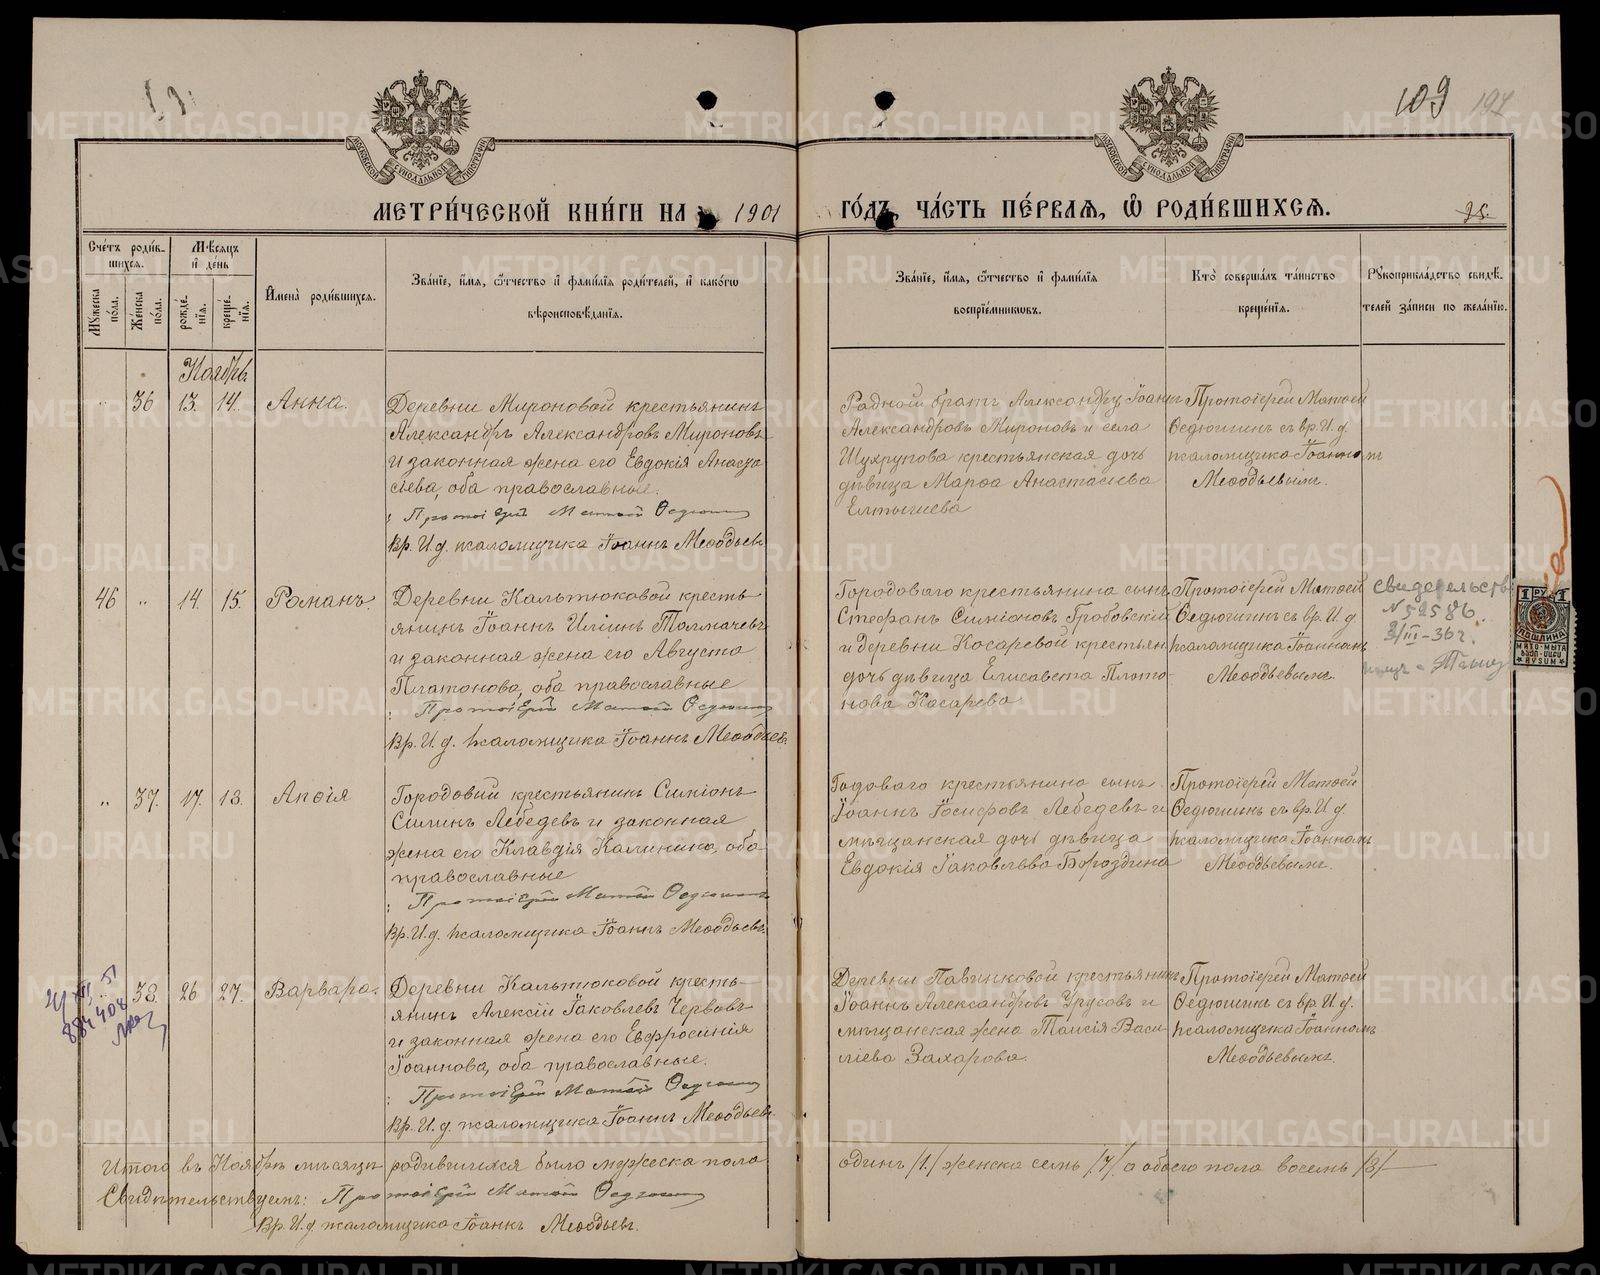 109 197
МОСКОВСКОЙ СѴНОДАЛЬНОЙ ТИПОГРАФІИ
МОСКОВСКОЙ СѴНОДАЛЬНОЙ ТИПОГРАФІИ
МЕТРИ́ЧЕСКОЙ КНИ́ГИ НА 1901 ГО́ДЪ, ЧА́СТЬ ПЕ́РВАѦ, Ѡ҆ РОДИ́ВШИХСѦ.
Сче́тъ роди́вшихсѧ.
Мꙋ́жеска по́ла.
Же́нска по́ла.
Мѣ́сѧцъ и҆ де́нь
рожде́нїѧ.
креще́нїѧ.
И҆мена̀ роди́вшихсѧ.
Зва́нїе, и҆́мѧ, ѻ҆́тчество и҆ фами́лїѧ роди́телей, и҆ како́гѡ
вѣроисповѣ́данїѧ.
Зва́нїе, и҆́мѧ, ѻ҆́тчество и҆ фами́лїѧ
воспрїе́мникѡвъ.
Кто̀ соверша́лъ та́инство
креще́нїѧ.
Рꙋкоприкла́дство свидѣ́телей за́писи по жела́нїю.
Ноябрь
„ 36 13. 14. Анна.
Деревни Мироновой крестьянинъ
Александръ Александровъ Мироновъ
и законная жена его Евдокія Анаста
сіева, оба православные.
: Протоіерей Матѳей Ѳедюшинъ
Вр. И. д. псаломщика Іоаннъ Меѳодьевъ
Родной братъ Александръ Іоаннъ
Александровъ Мироновъ и села
Шухрупова крестьянская дочь
дѣвица Марѳа Анастасіева
Елтышева
Протоіерей Матѳей
Ѳедюшинъ съ вр. И. д.
псаломщика Іоанномъ
Меѳодьевымъ.
46 „ 14. 15. Романъ.
Деревни Кальтюковой кресть
янинъ Іоаннъ Иліинъ Толмачевъ
и законная жена его Августа
Платонова, оба православные
: Протоіерей Матѳей Ѳедюшинъ
Вр. И. д. псаломщика Іоаннъ Меѳодьевъ.
Городоваго крестьянина сынъ
Стефанъ Симіоновъ Гробовскій
и деревни Косаревой крестьян
дочь дѣвица Елисавета Плато
нова Косарева
Протоіерей Матѳей
Ѳедюшинъ съ вр. И. д.
псаломщика Іоанномъ
Меѳодьевымъ.
Свидетельств
№ 52586.
8/III-36 г.
1 РУ 1
ПОШЛИНА
„ 37. 17. 18. Апѳія
Городовой крестьянинъ Симіонъ
Силинъ Лебедевъ и законная
жена его Клавдія Калинина, оба
православные
: Протоіерей Матѳей Ѳедюшинъ
Вр. И. д. псаломщика Іоаннъ Меѳодьевъ.
Годоваго крестьянина сынъ
Іоаннъ Іосифовъ Лебедевъ и
мѣщанская дочь дѣвица
Евдокія Іаковльва Бороздина
Протоіерей Матѳей
Ѳедюшинъ съ вр. И. д.
псаломщика Іоанномъ
Меѳодьевымъ.
884408
38. 26 27. Варвара.
Деревни Кальтюковой кресть-
янинъ Алексій Іаковлевъ Червовъ
и законная жена его Евфросинія
Іоаннова, оба православные.
: Протоіерей Матѳей Ѳедюшинъ
Вр. И. д. псаломщика Іоаннъ Меѳодьевъ.
Деревни Павинковой крестьянинъ
Іоаннъ Александровъ Урусовъ и
мѣщанская жена Таисія Васи
ліева Захарова.
Протоіерей Матѳей
Ѳедюшинъ съ вр. И. д.
псаломщика Іоанномъ
Меѳодьевымъ.
Итого въ Ноябрѣ мѣсяцѣ родившихся было мужеска пола одинъ /1/ женска семь /7/ а обоего пола восемь /8/
Свидѣтельствуемъ: Протоіерей Матѳей Ѳедюшинъ
Вр. И. д. псаломщика Іоаннъ Меѳодьевъ.
METRIKI.GASO-URAL.RU